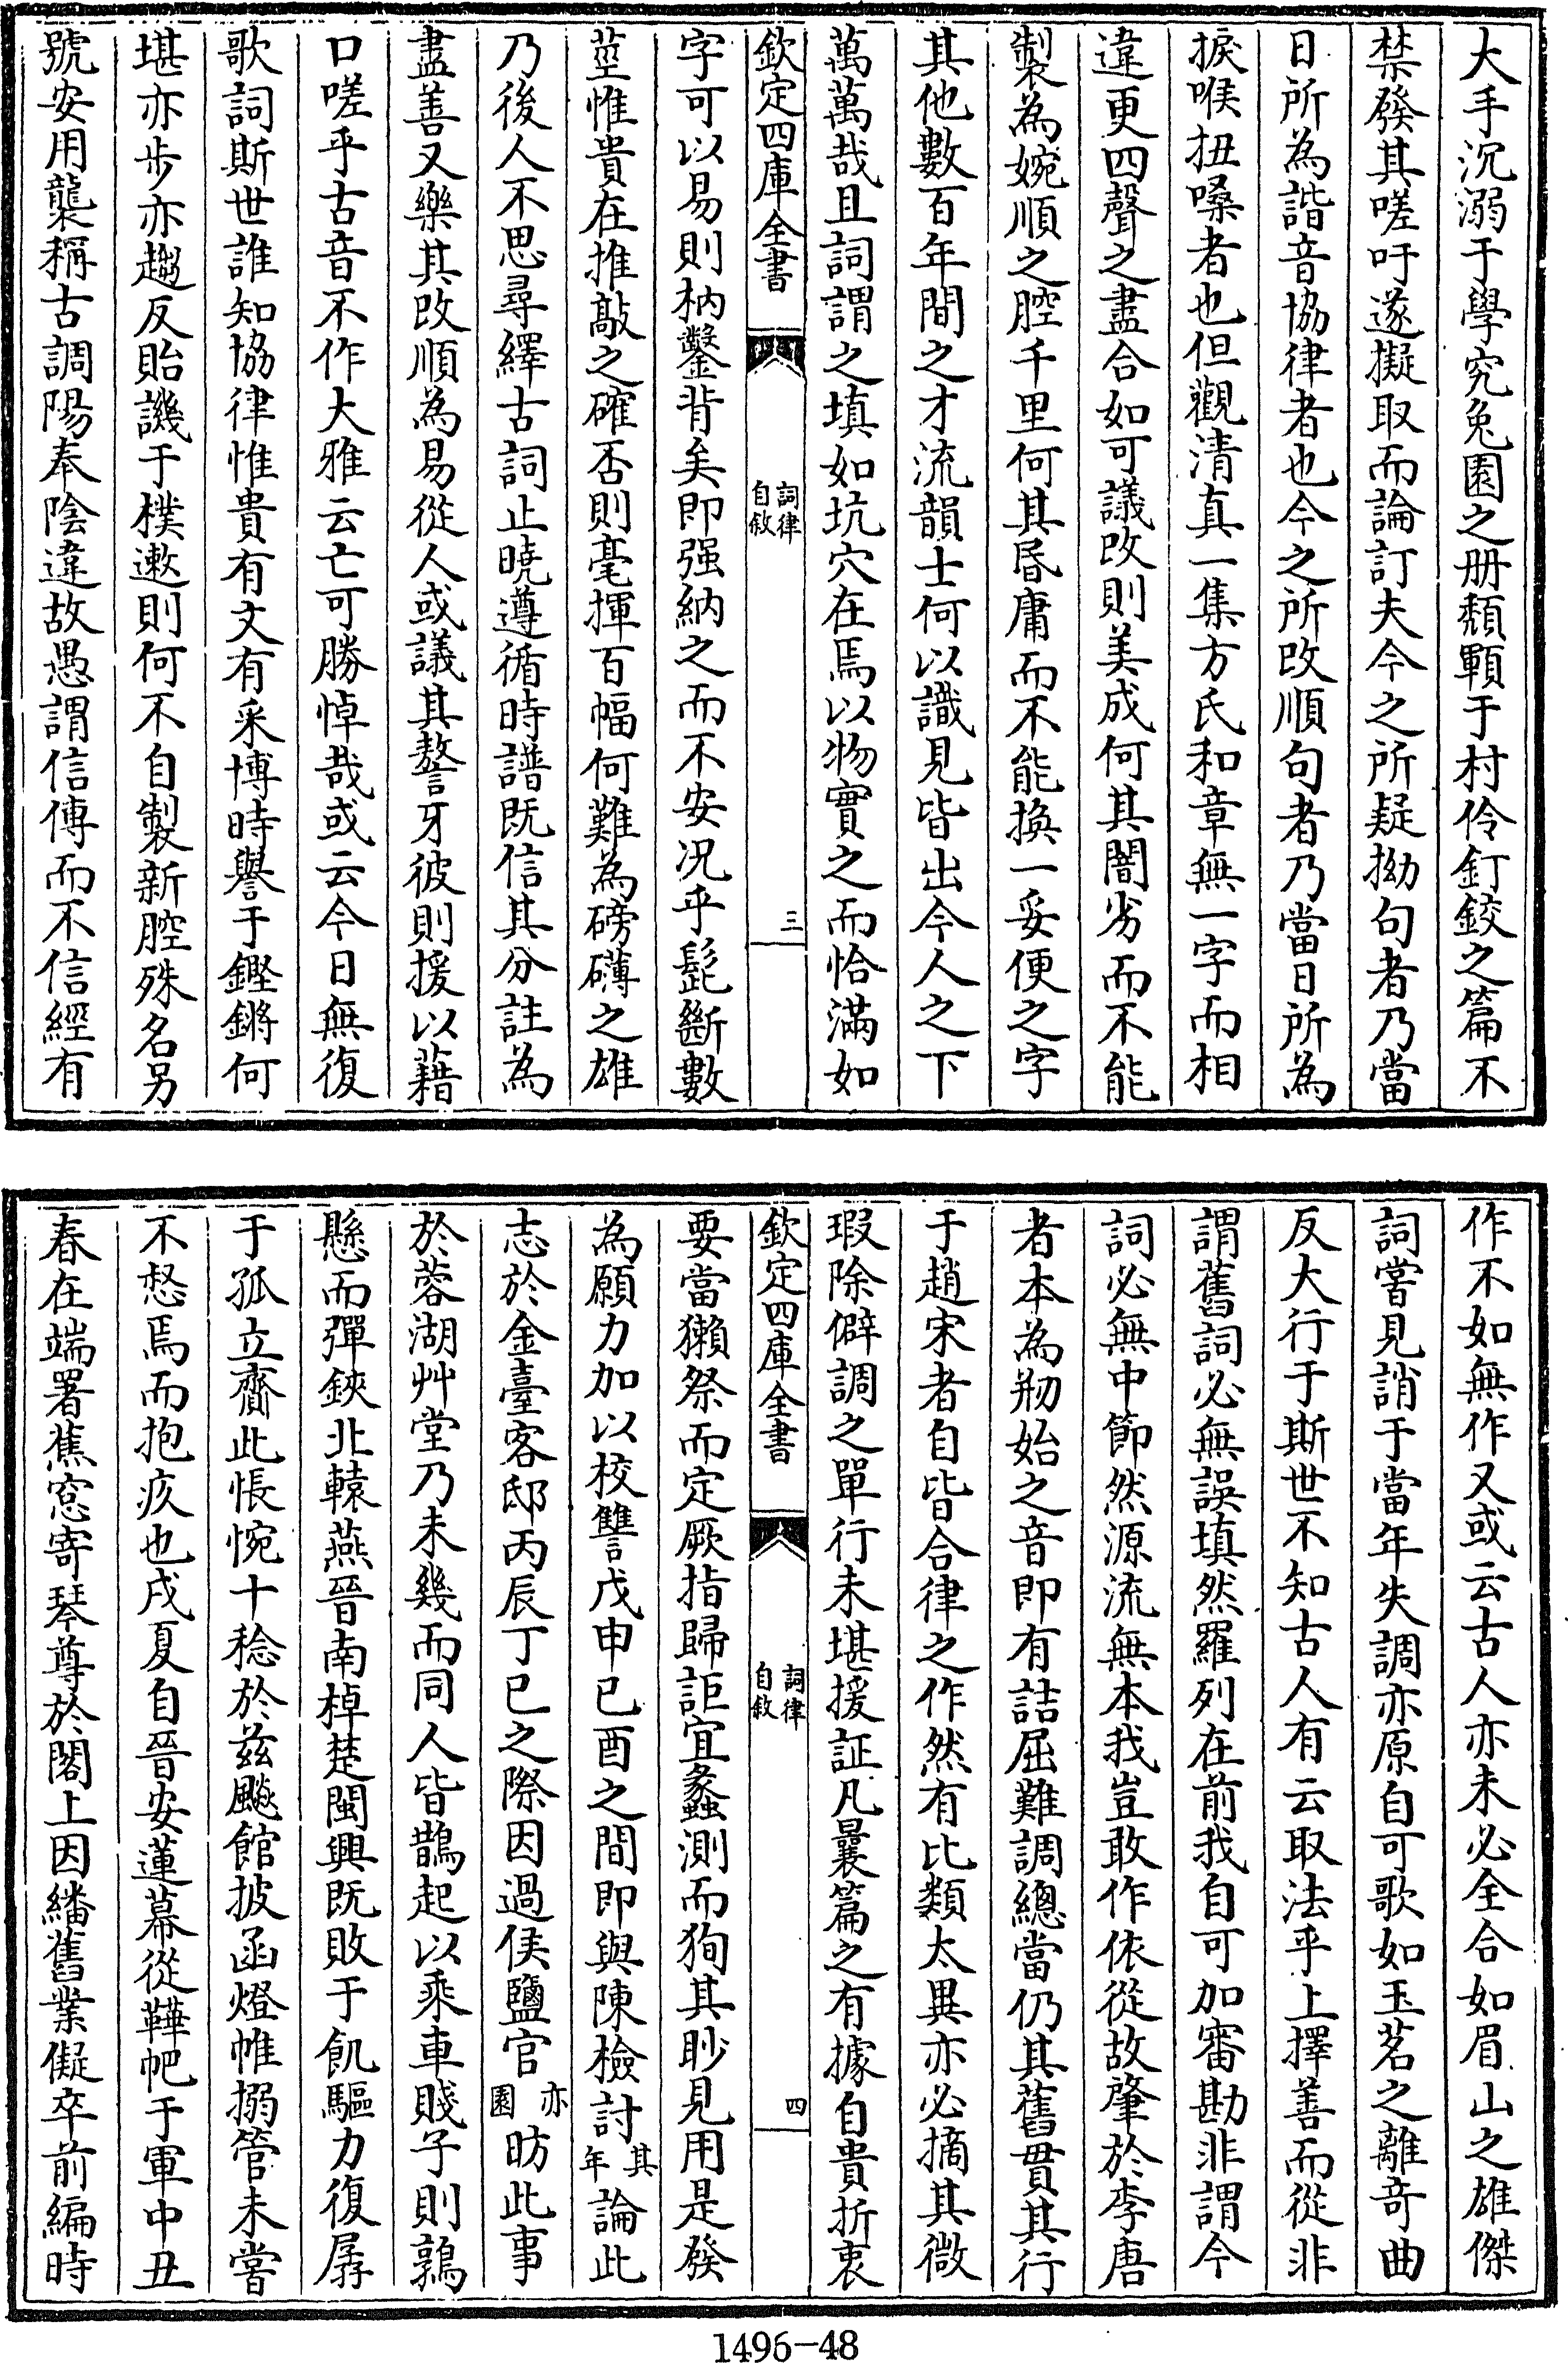 大手沉溺于學究兔園之册頽顐于村伶釘鉸之篇不
禁發其嗟吁遂擬取而論訂夫今之所疑拗句者乃當
日所為諧音協律者也今之所改順句者乃當日所為
捩喉扭嗓者也但觀清真一集方氏和章無一字而相
違更四聲之盡合如可議改則美成何其闇劣而不能
製為婉順之腔千里何其昏庸而不能換一妥便之字
其他數百年間之才流韻士何以識見皆出今人之下
萬萬哉且詞謂之填如坑穴在焉以物實之而恰滿如
欽定四庫全書
詞律
自敘
三
字可以易則枘鑿背矣即强納之而不安况乎髭斷數
莖惟貴在推敲之確否則毫揮百幅何難為磅礴之雄
乃後人不思尋繹古詞止曉遵循時譜既信其分註為
盡善又樂其改順為易從人或議其聱牙彼則援以藉
口嗟乎古音不作大雅云亡可勝悼哉或云今日無復
歌詞斯世誰知協律惟貴有文有采博時譽于鏗鏘何
堪亦步亦趨反貽譏于樸遬則何不自製新腔殊名另
號安用襲稱古調陽奉陰違故愚謂信傳而不信經有
作不如無作又或云古人亦未必全合如眉山之雄傑
詞嘗見誚于當年失調亦原自可歌如玉茗之離奇曲
反大行于斯世不知古人有云取法乎上擇善而從非
謂舊詞必無誤填然羅列在前我自可加審勘非謂今
詞必無中節然源流無本我豈敢作依從故肇於李唐
者本為剏始之音即有詰屈難調總當仍其舊貫其行
于趙宋者自皆合律之作然有比類太異亦必摘其微
瑕除僻調之單行未堪援証凡曩篇之有據自貴折衷
欽定四庫全書
詞律
自敘
四
要當獺祭而定厥指歸詎宜蠡測而狥其眇見用是發
為願力加以校讐戊申已酉之間即與陳檢討其年論此
志於金臺客邸丙辰丁已之際因過侯鹽官亦園昉此事
於蓉湖艸堂乃未幾而同人皆鵲起以乘車賤子則鶉
懸而彈鋏北轅燕晉南棹楚閩興既敗于飢驅力復孱
于孤立齎此悵惋十稔於兹颷館披函燈帷搦管未嘗
不惄焉而抱疚也戌夏自晉安蓮幕從鞾帊于軍中丑
春在端署蕉窓寄琴尊於閣上因繙舊業儗卒前編時
1496-48